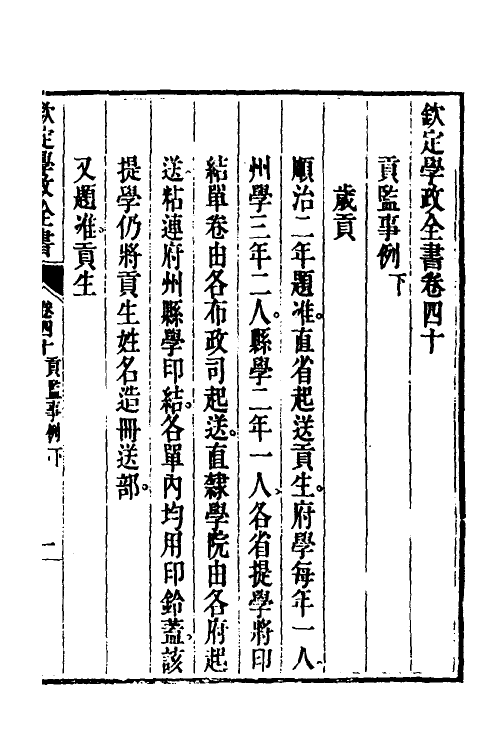 欽定學政全書卷四十
貢監事例下
歲貢
順治二年題准直省起送貢生府學每年一人
州學三年二人縣學二年一人各省提學將印
結單卷由各布政司起送直隸學院由各府起
送粘連府州縣學印結各單內均用印鈴蓋該
提學仍將貢生姓名造冊送部
又題准貢生
欽定學政全書 卷四十 貢監事例下 一